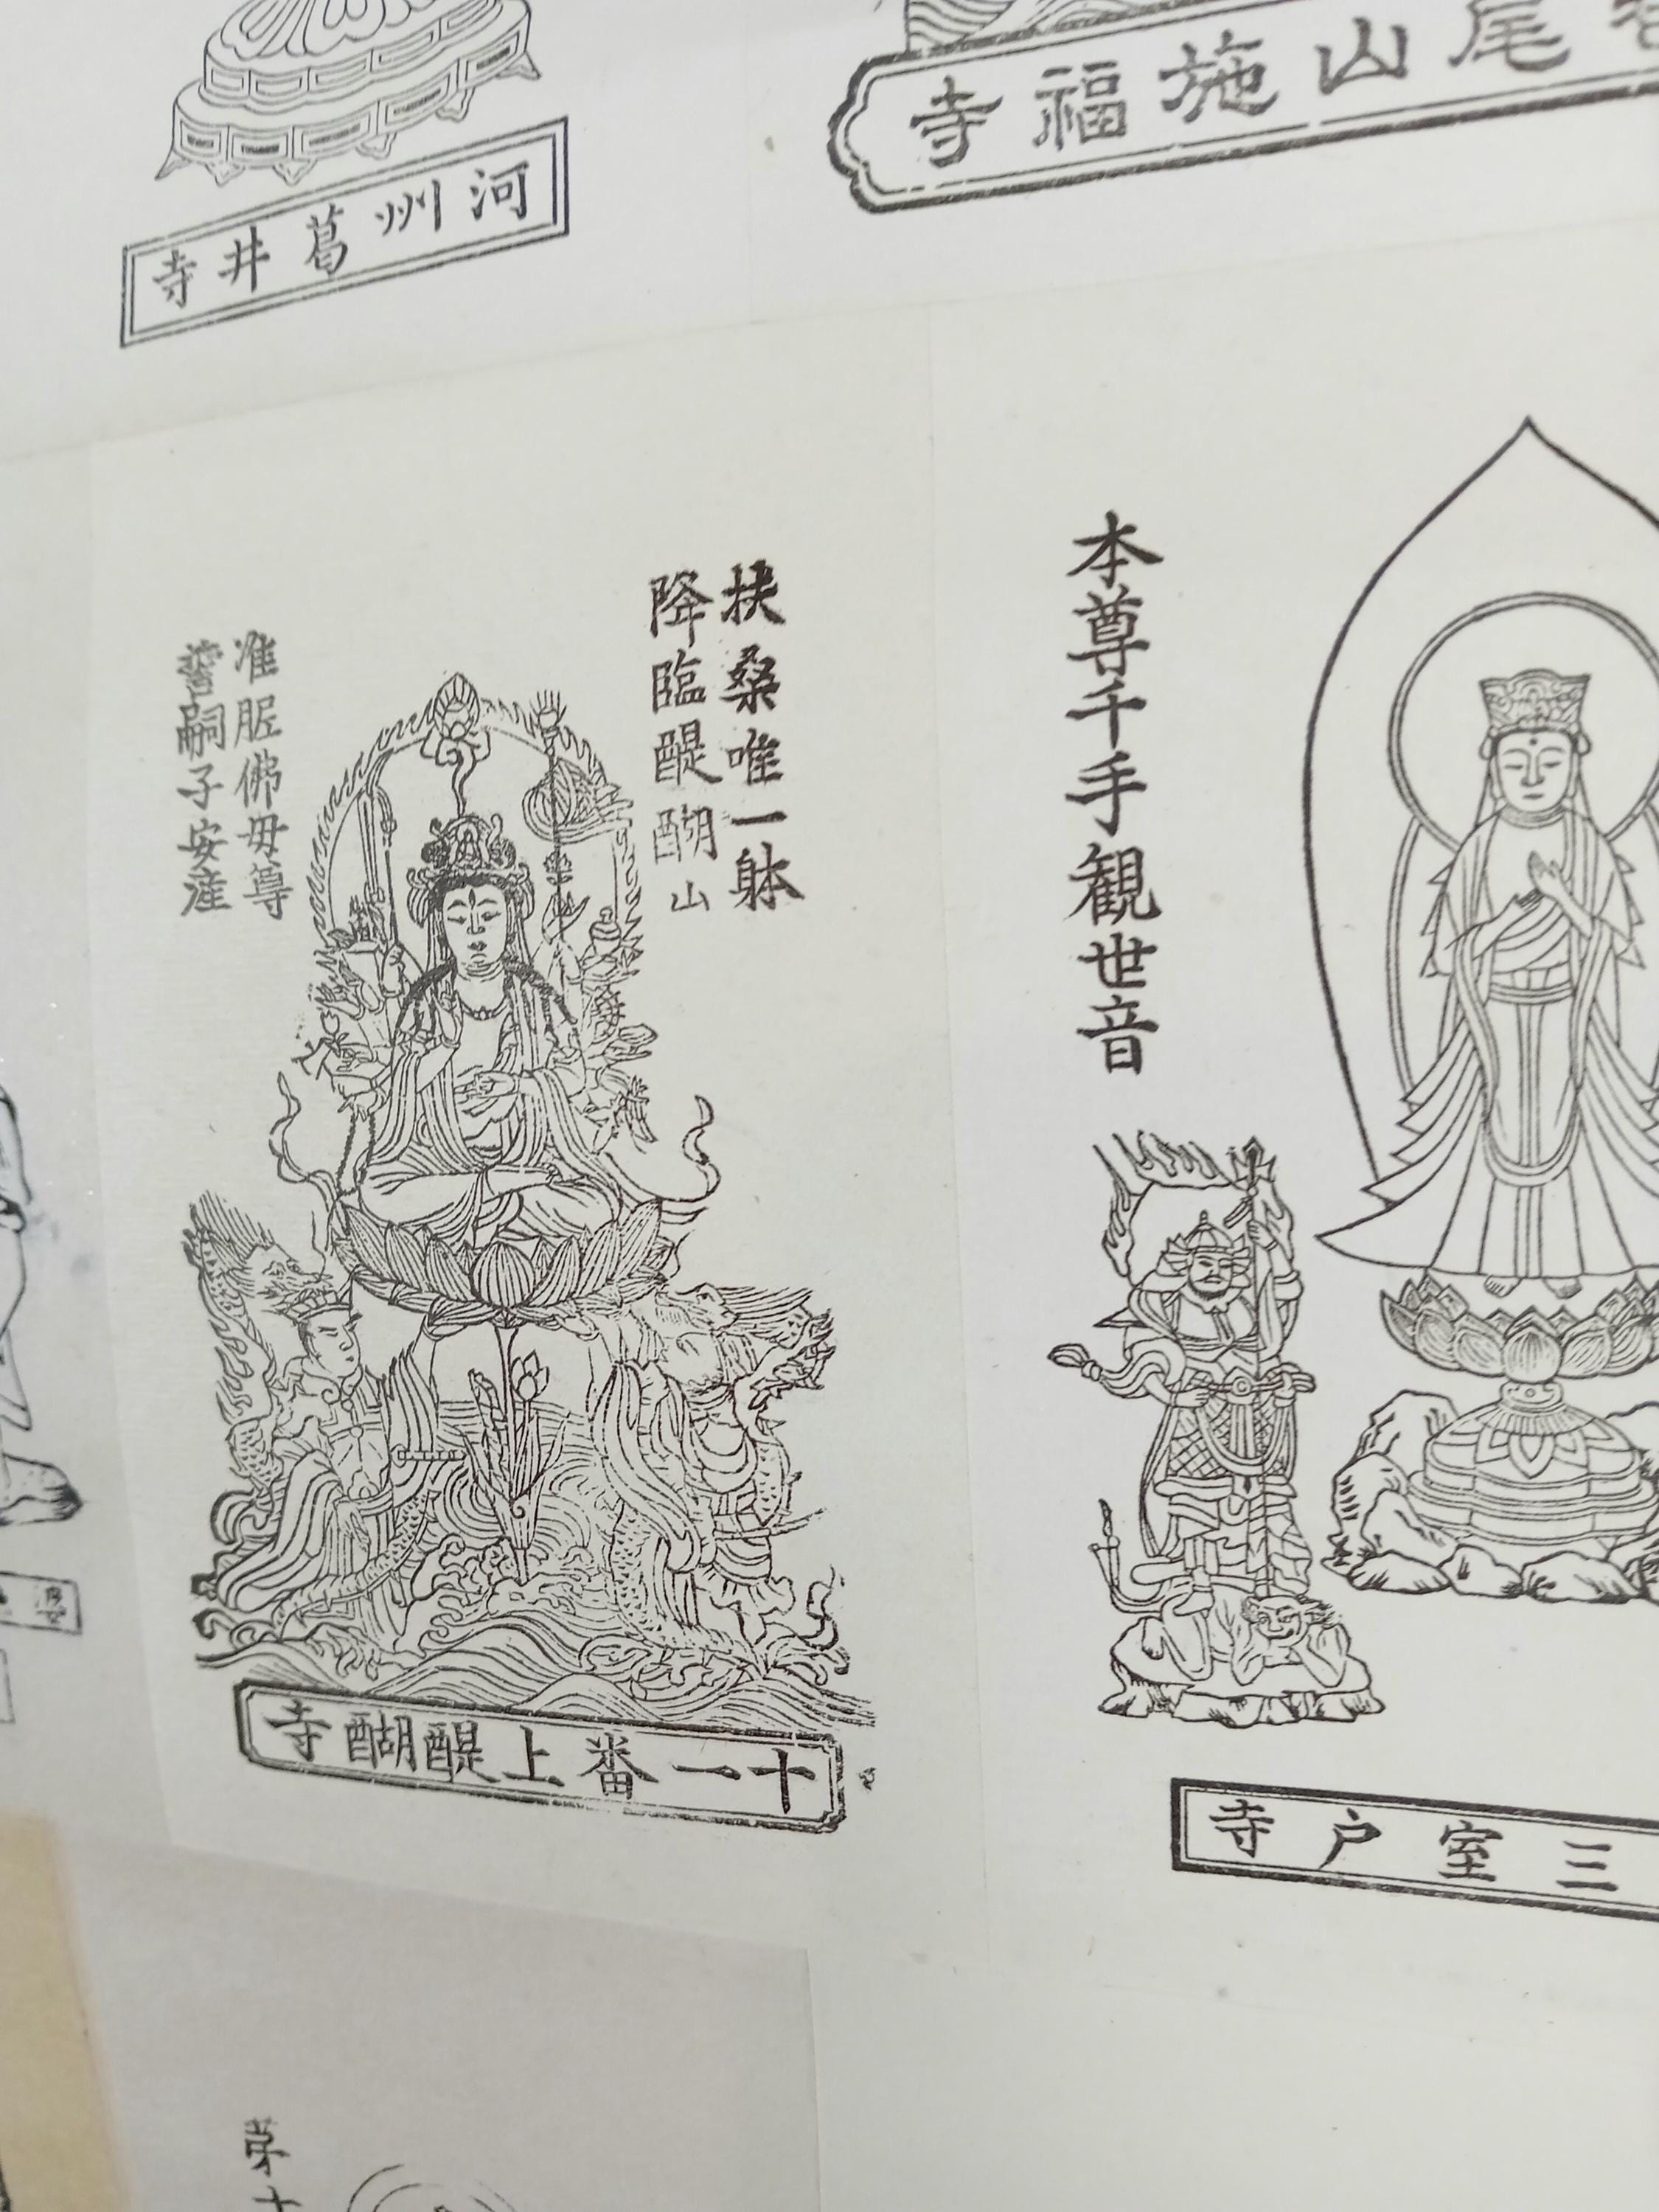 河州葛井寺
尾山施福寺
扶桑唯一躰
降臨醍醐山
准胝佛母尊
誓嗣子安産
十一番上醍醐寺
本尊千手観世音
三室戸寺
第十